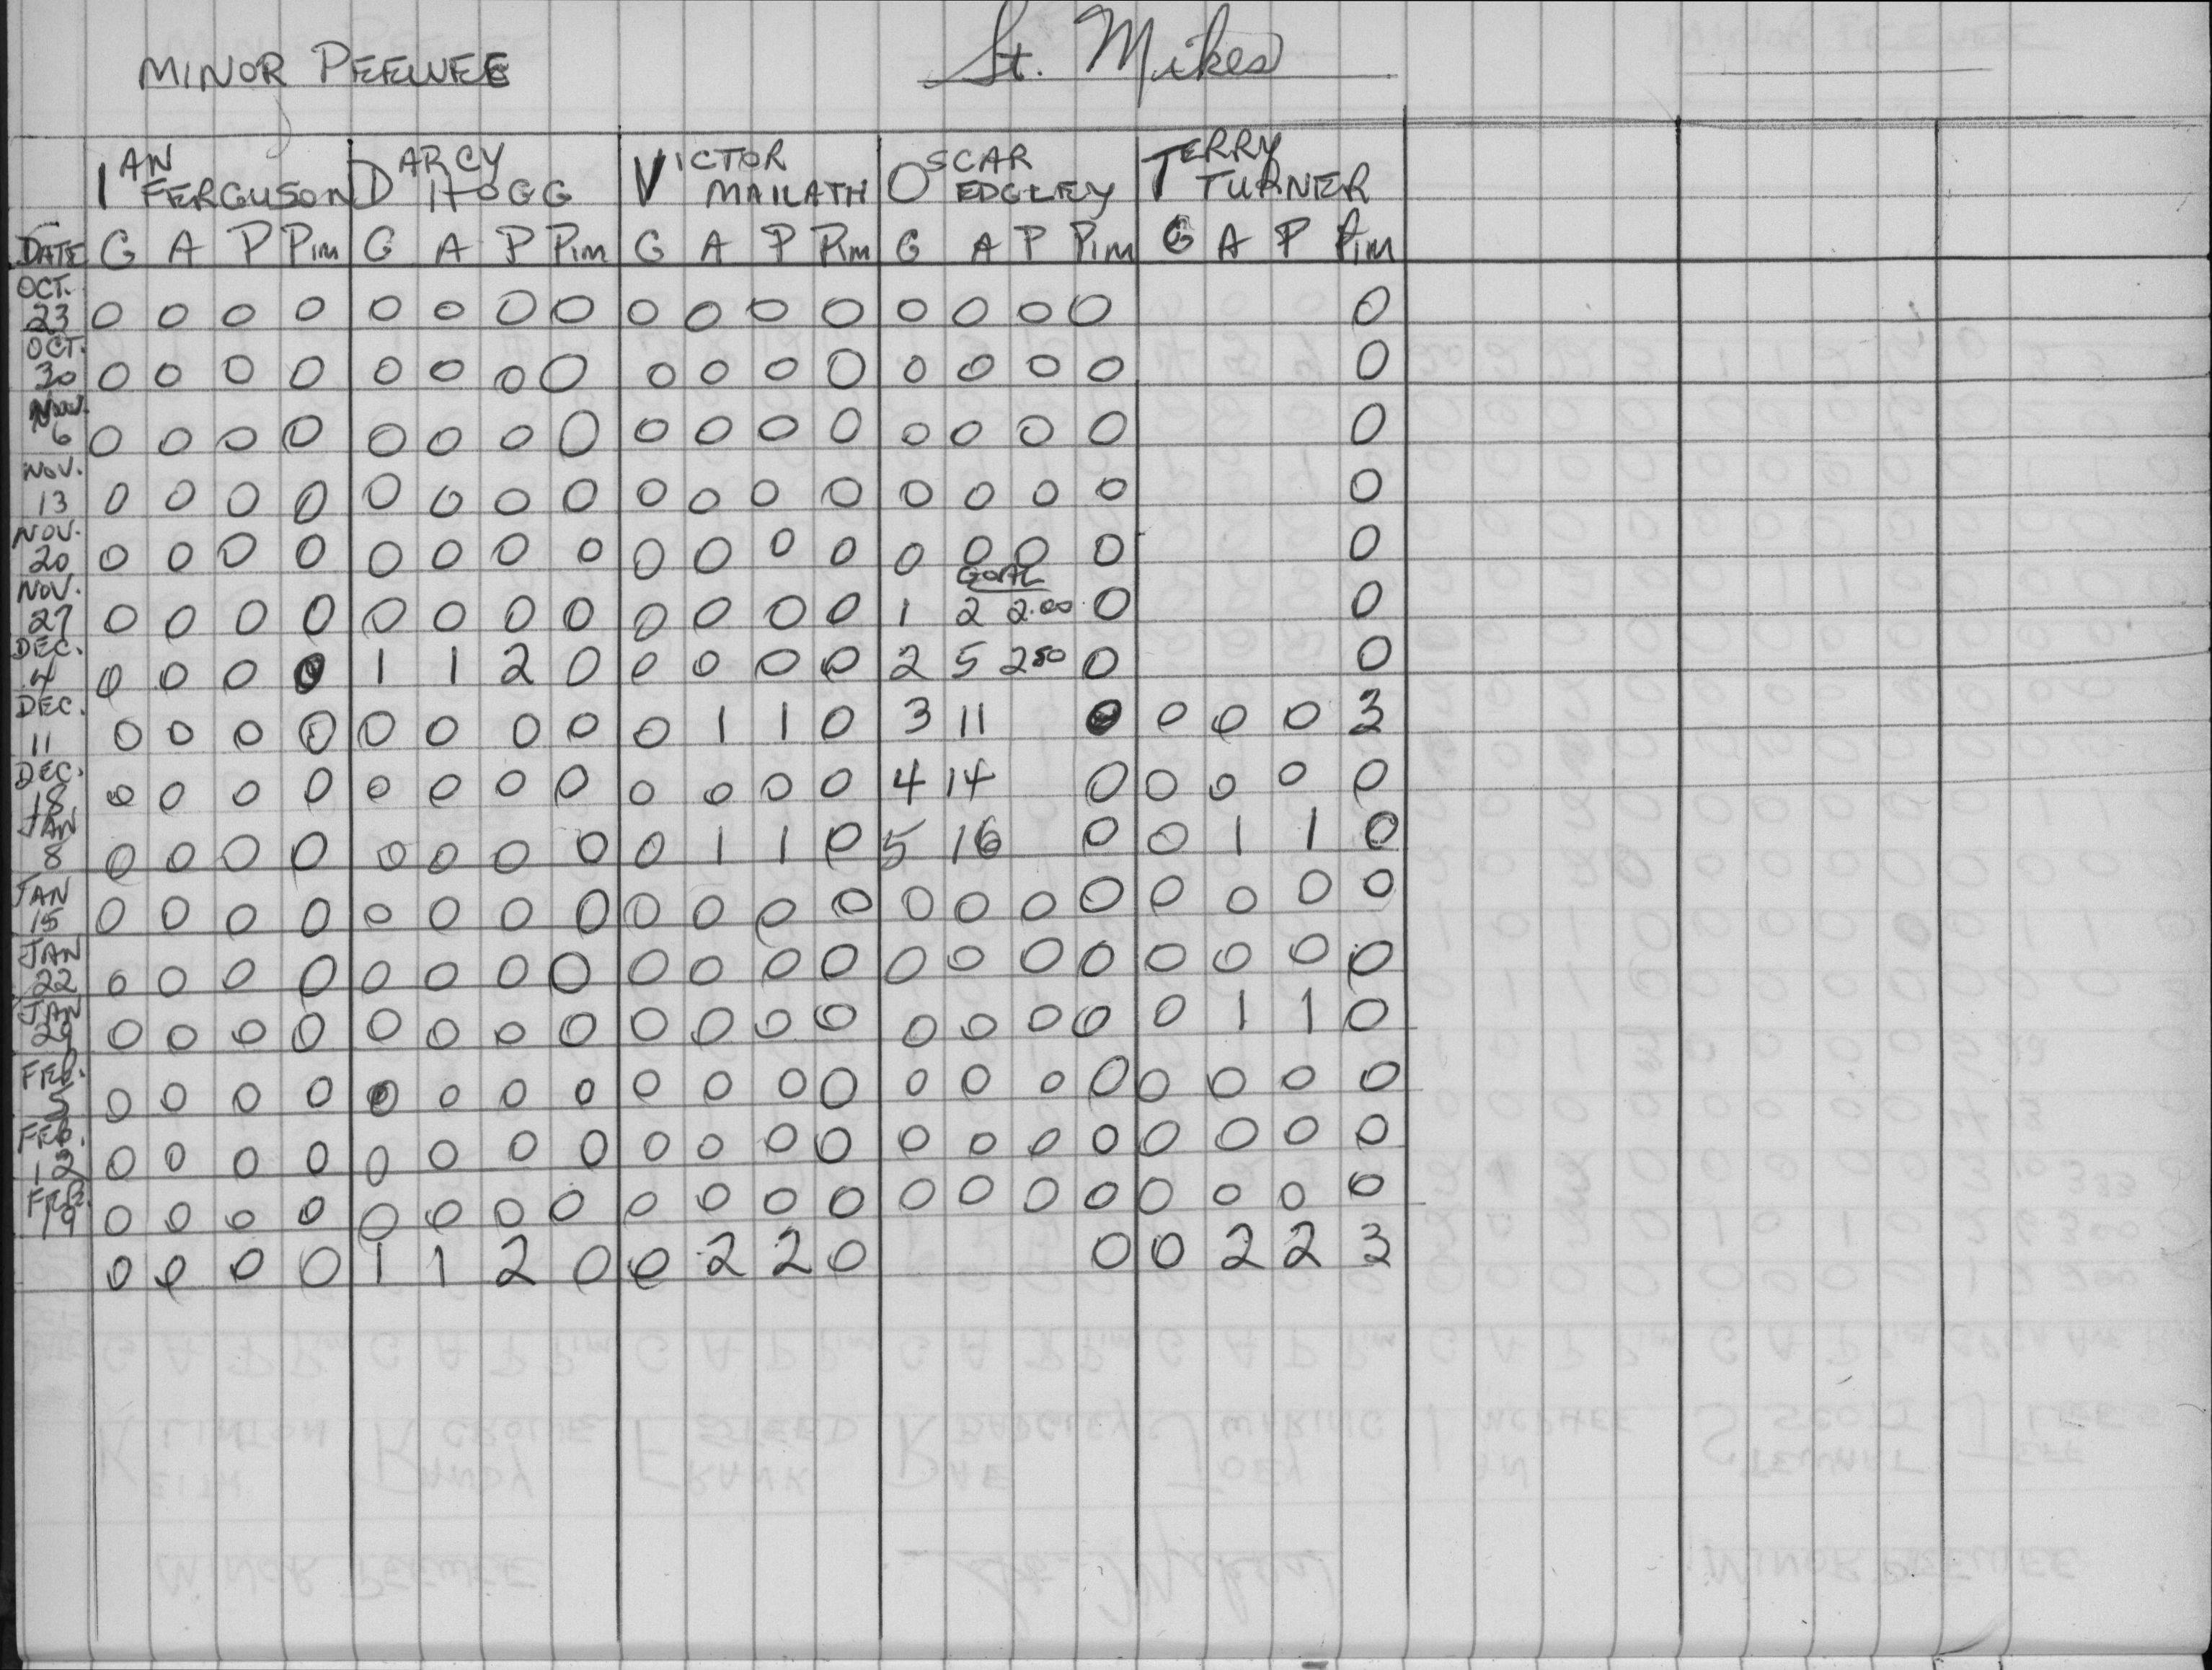 MINOR PEEWEE St. Mikes
IAN FERGUSON DARCY HOGG VICTOR MAILATH OSCAR EDGLEY TERRY TURNER
DATE G A P Pim G A P Pim G A P Pim G A P Pim G A P Pim
OCT. 23 0 0 0 0 0 0 0 0 0 0 0 0 0 0 0 0 0
OCT. 30 0 0 0 0 0 0 0 0 0 0 0 0 0 0 0 0 0
Nov. 6 0 0 0 0 0 0 0 0 0 0 0 0 0 0 0 0 0
NOV. 13 0 0 0 0 0 0 0 0 0 0 0 0 0 0 0 0 0
NOV. 20 0 0 0 0 0 0 0 0 0 0 0 0 0 0 0 0 0
GOAL
NOV. 27 0 0 0 0 0 0 0 0 0 0 0 0 1 2 2.00 0 0
DEC. 4 0 0 0 0 1 1 2 0 0 0 0 0 2 5 2 50 0 0
DEC. 11 0 0 0 0 0 0 0 0 0 1 1 0 3 11 0 0 0 0 3
DEC. 18 0 0 0 0 0 0 0 0 0 0 0 0 4 14 0 0 0 0 0
JAN 8 0 0 0 0 0 0 0 0 0 1 1 0 5 16 0 0 1 1 0
JAN 15 0 0 0 0 0 0 0 0 0 0 0 0 0 0 0 0 0 0 0 0
JAN 22 0 0 0 0 0 0 0 0 0 0 0 0 0 0 0 0 0 0 0 0
JAN 29 0 0 0 0 0 0 0 0 0 0 0 0 0 0 0 0 0 1 1 0
FEB. 5 0 0 0 0 0 0 0 0 0 0 0 0 0 0 0 0 0 0 0 0
FEB. 12 0 0 0 0 0 0 0 0 0 0 0 0 0 0 0 0 0 0 0 0
FEB. 19 0 0 0 0 0 0 0 0 0 0 0 0 0 0 0 0 0 0 0 0
0 0 0 0 1 1 2 0 0 2 2 0 0 0 2 2 3